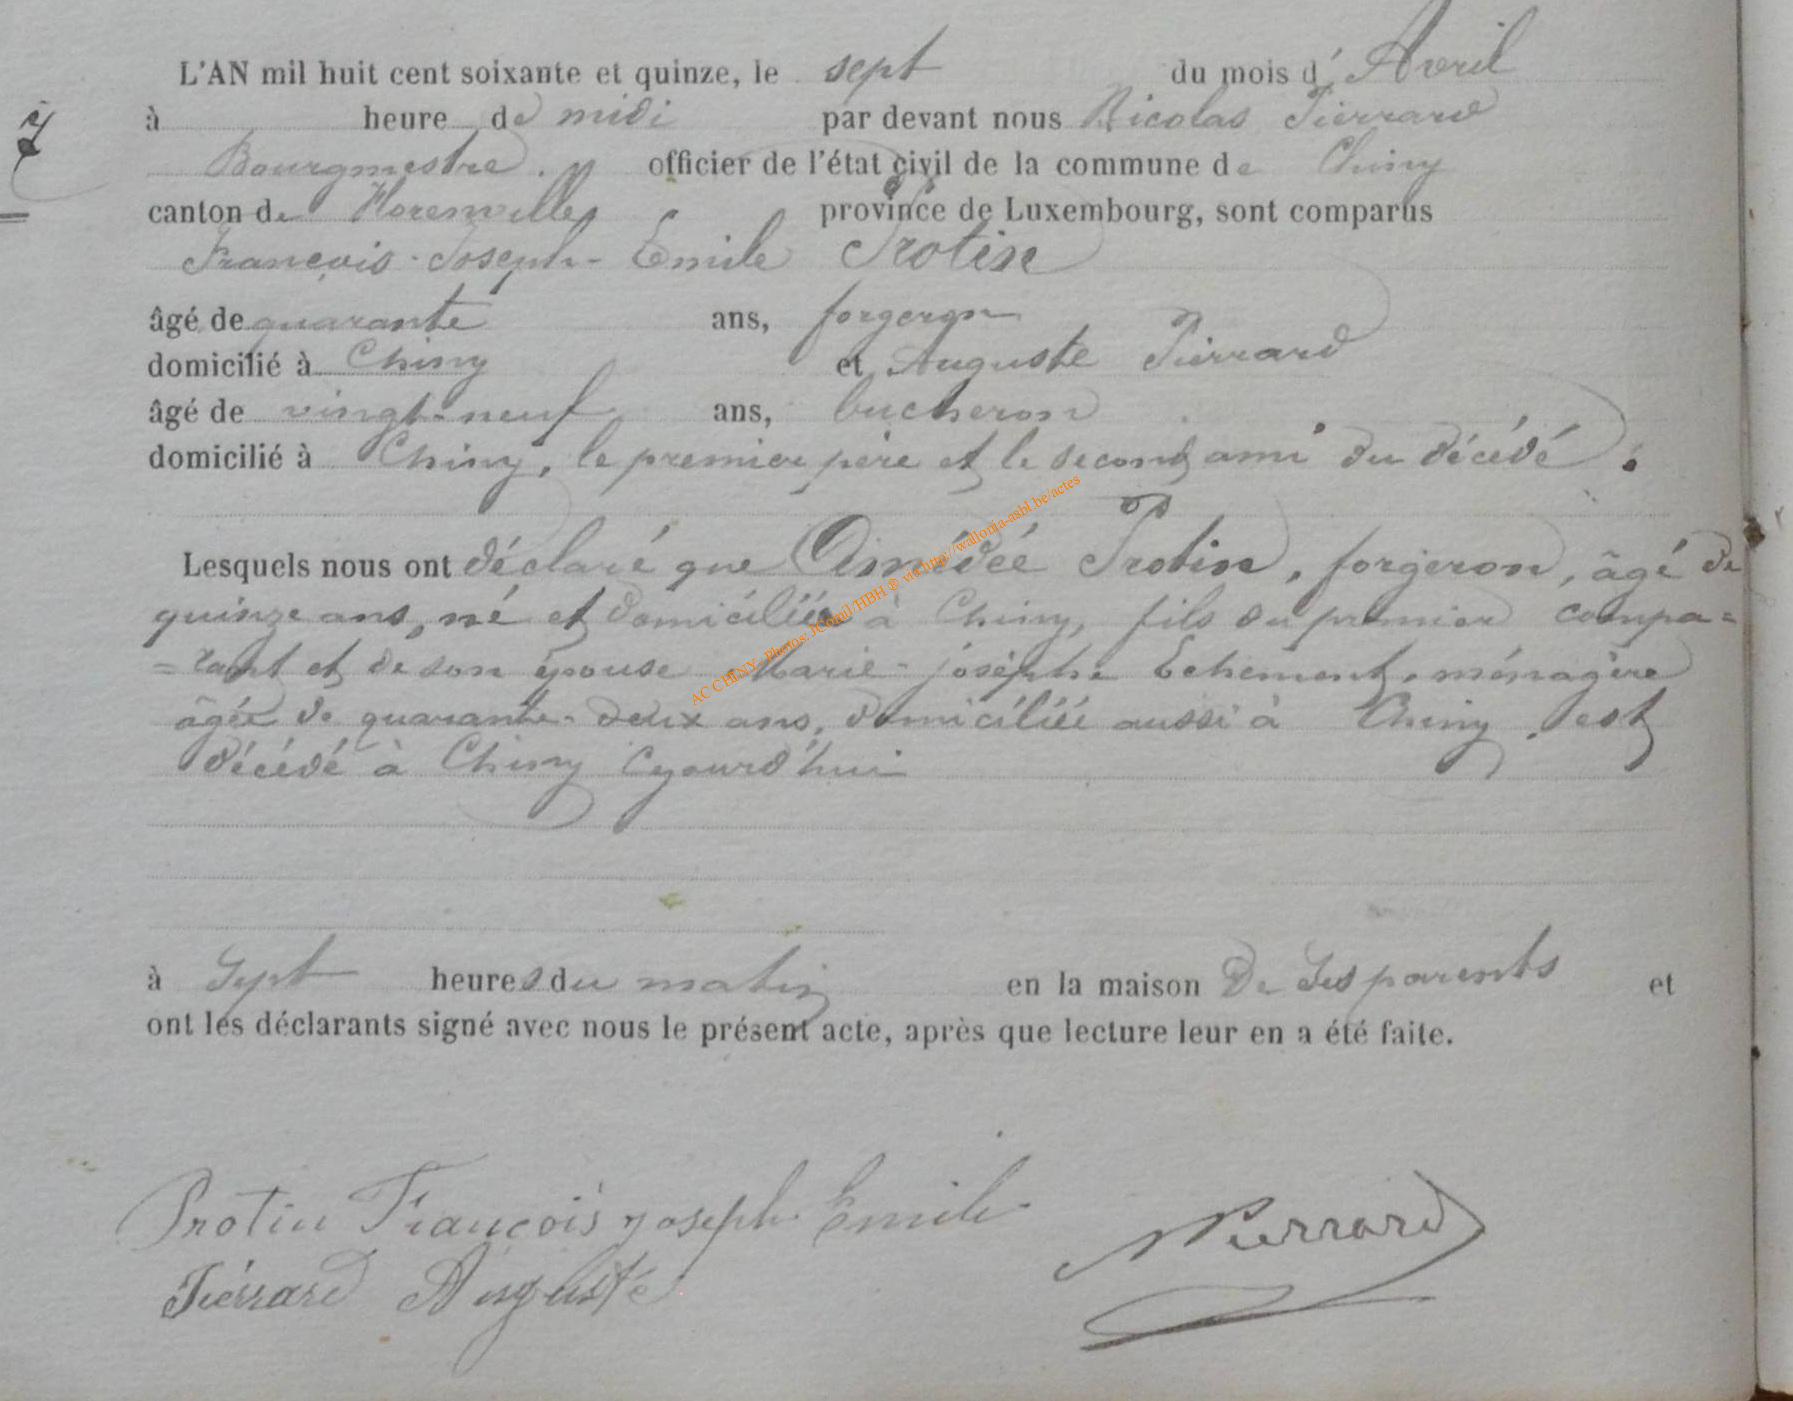 L'AN mil huit cent soixante et quinze, le sept du mois d'Avril
7
à heure de midi par devant nous Nicolas Pierrard
Bourgmestre. officier de l'état civil de la commune de Chiny
canton de Florenville province de Luxembourg, sont comparus
François-Joseph-Emile Protin
âgé de quarante ans, forgeron
domicilié à Chiny et Auguste Pierrard
âgé de vingt-neuf ans, bucheron
domicilié à Chiny, le premier père et le second ami du décédé.
Lesquels nous ont déclaré que Amédée Protin, forgeron, âgé de
quinze ans, né et domicilié à Chiny, fils du premier compa=
=rant et de son épouse Marie-josephe Echement, ménagère
âgée de quarante-deux ans, domiciliée aussi à Chiny, est
décédé à Chiny cejourd'hui
à sept heures du matin en la maison de ses parents et
ont les déclarants signé avec nous le présent acte, après que lecture leur en a été faite.
Protin François joseph Emile
NPierrard
Piérrard Auguste
AC CHINY - Photos: JCornil/HBH ® via http://wallonia-asbl.be/actes